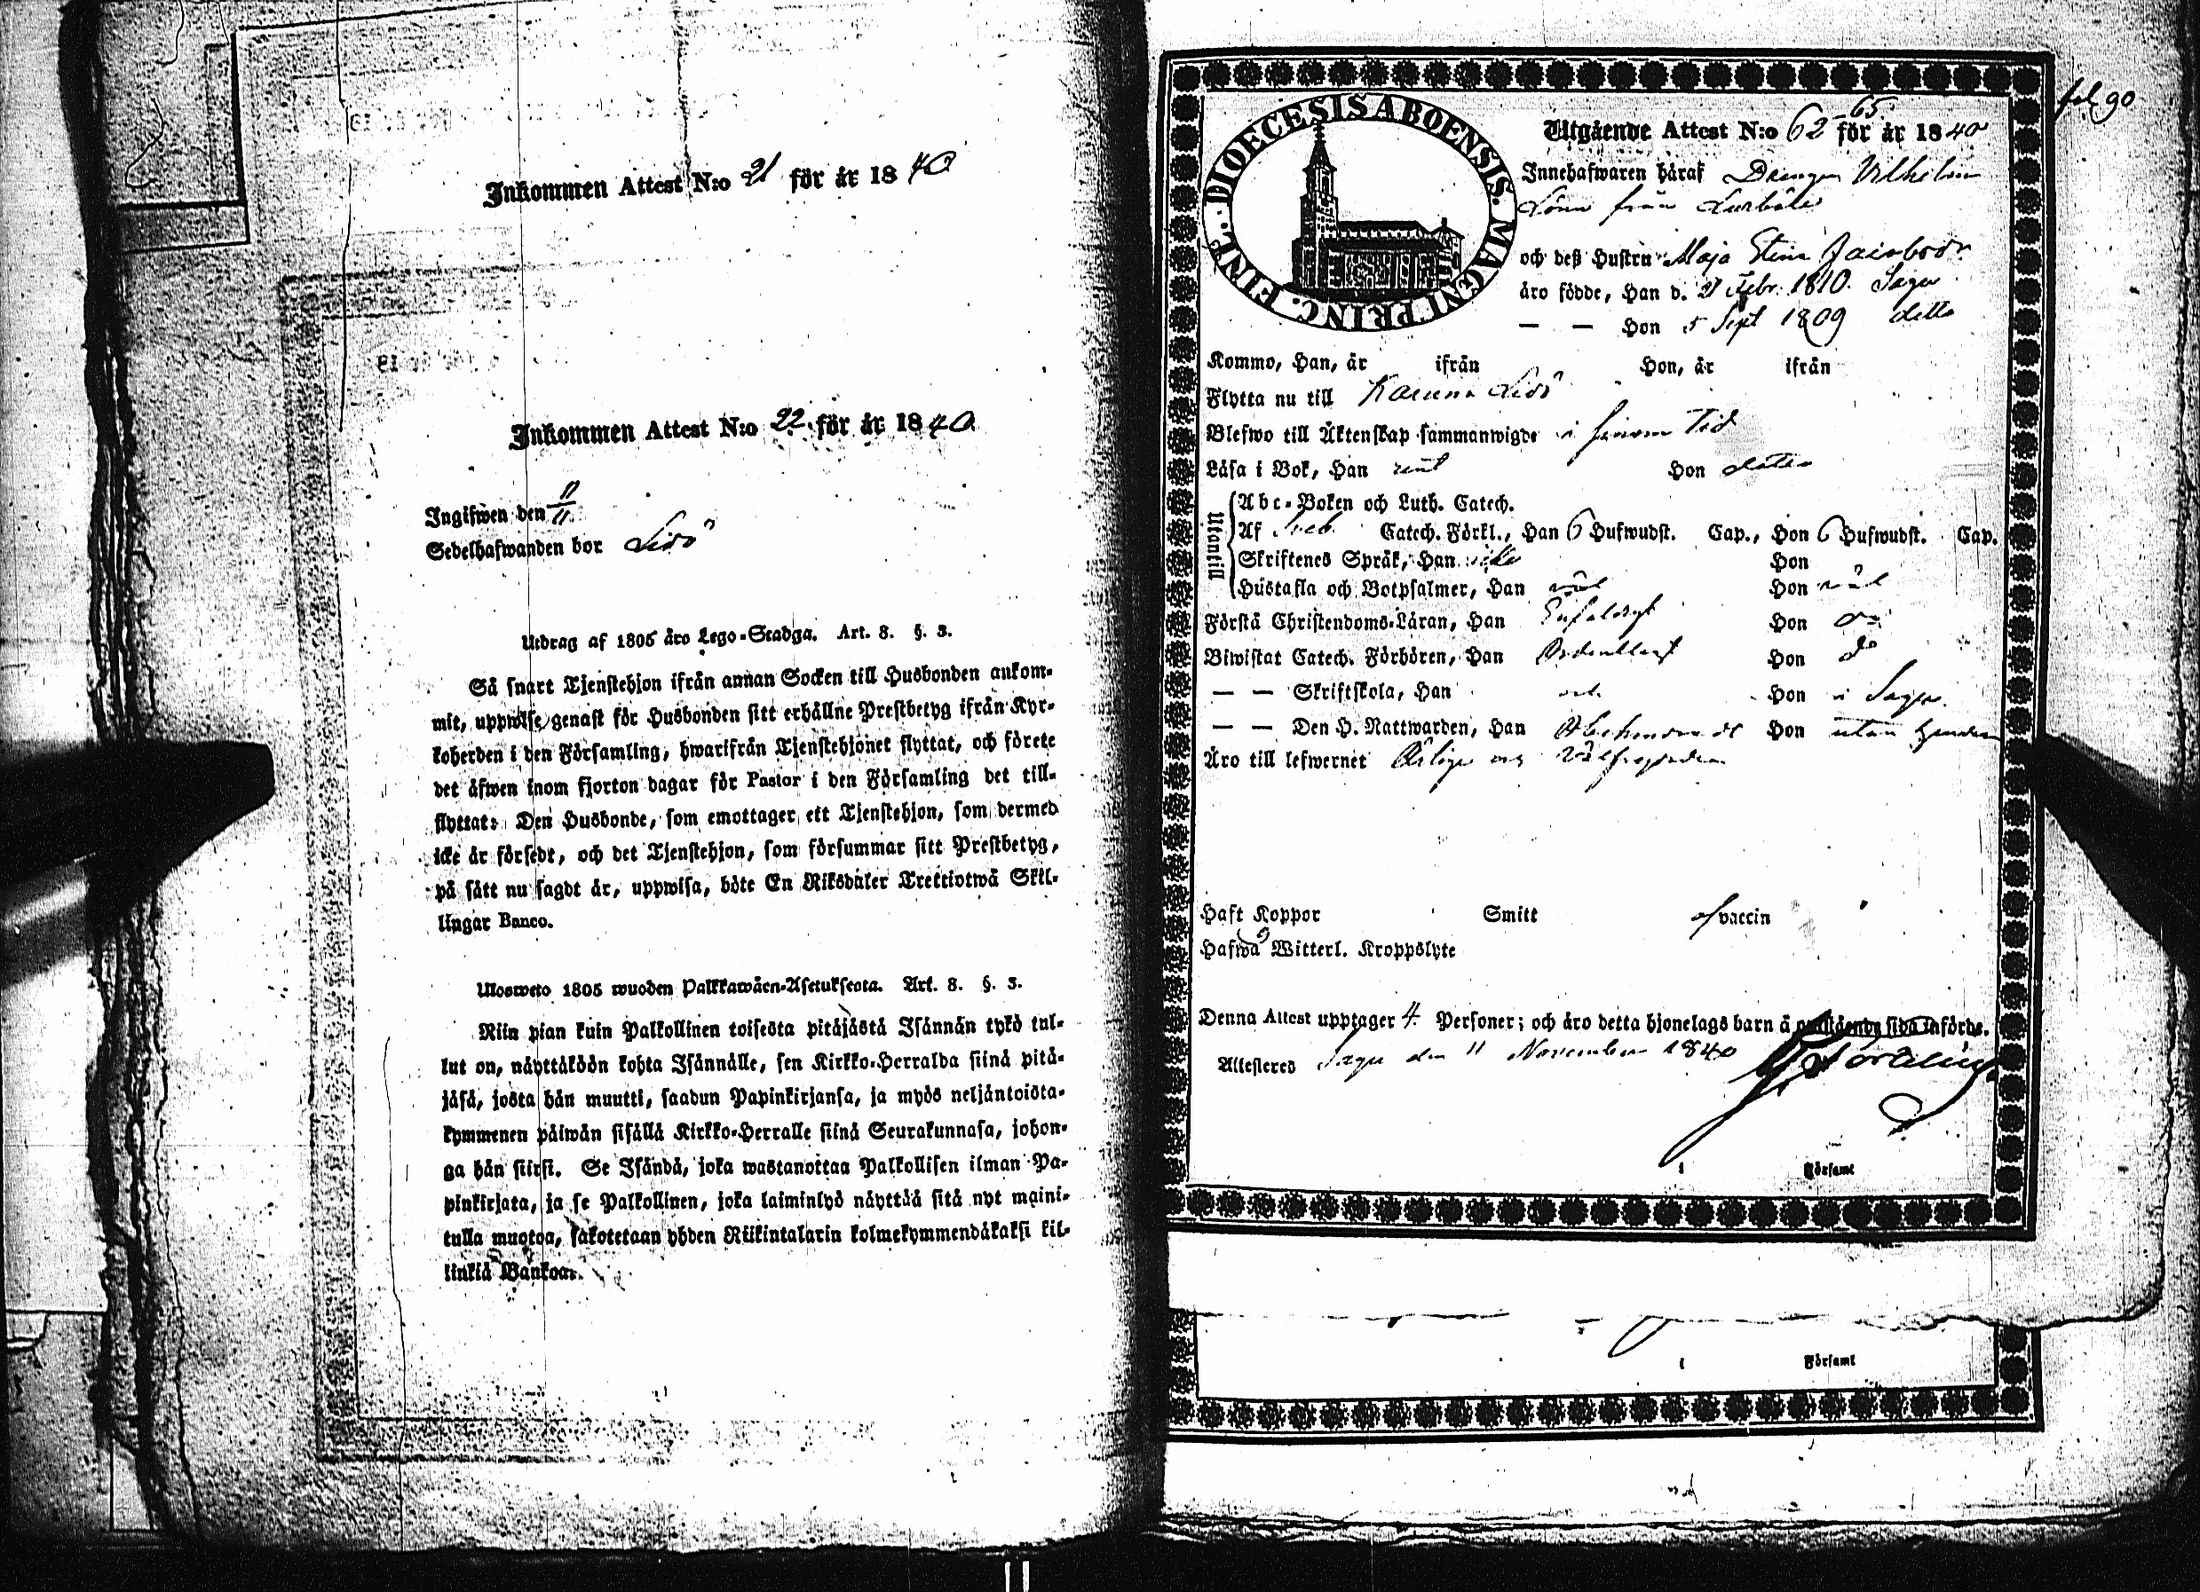 Inkommen Attest N:o 21 för år 1840
Inkommen Attest N:o 22 för år 1840
Ingifwen den 11/11
Sedelhafwanden bor Lisö
Utdrag af 1805 års Lego-Stadga. Art. 8. §. 3.
Så snart Tjenstehjon ifrån annan Socken till Husbonden ankom-
mit, uppwise genast för Husbonden sitt erhållne Prestbetyg ifrån Kyr-
koherden i den Församling, hwarifrån Tjenstehjonet flyttat, och förete
det äfwen inom fjorton dagar för Pastor i den Församling det till-
flyttat: Den Husbonde, som emottager ett Tjenstehjon, som dermed
icke är försedt, och det Tjenstehjon, som försummar sitt Prestbetyg,
på sätt nu sagdt är, uppwisa, böte En Riksdaler Trettiotwå Skil-
lingar Banco.
Ulosweto 1805 wuoden Palkkawäen-Asetuksesta. Art. 8. §. 3.
Niin pian kuin Palkollinen toisesta pitäjästä Isännän tykö tul-
lut on, näyttäköön kohta Isännälle, sen Kirkko-Herralda siinä pitä-
jäsä, josta hän muutti, saadun Papinkirjansa, ja myös neljäntoista-
kymmenen päiwän sisällä Kirkko-Herralle siinä Seurakunnasa, johon-
ga hän siirsi. Se Isändä, joka wastanottaa Palkollisen ilman Pa-
pinkirjata, ja se Palkollinen, joka laiminlyö näyttää sitä nyt maini-
tulla muotoa, sakotetaan yhden Riikintalarin kolmekymmendäkaksi kil-
linkiä Bankoa.
fol 90
DIOECESIS ABOENSIS. MAGNI PRINC. FINL.
Utgående Attest N:o 62-65 för år 1840
Innehafwaren häraf Drengen Vilhelm
Lönn från
och deß Hustru Maja Stina Jacobsdr
äro födde, Han d. 21 Febr. 1810. Sagu
— — Hon 5 Sept 1809 detto
Kommo, Han, år ifrån Hon, år ifrån
Flytta nu till Karuna Lisö
Blefwo till Äktenskap sammanwigde i sinom Tid
Läsa i Bok, Han rent Hon detto
Utontill
Abc-Boken och Luth. Catech.
Af Sveb. Catech. Förkl., Han 6 Hufwudst. Cap., Hon 6 Hufwudst. Cap.
Skriftenes Språk, Han icke Hon
Hustafla och Botpsalmer, Han väl Hon väl
Förstå Christendoms-Läran, Han Enfaldigt Hon do
Biwistat Catech. Förhören, Han Ordentligt Hon do
— — Skriftskola, Han och Hon i Sagu
— — Den H. Nattwarden, Han Hon utan hinder
Äro till lefwernet Ärlige och Välfrejdade
Haft Koppor Smitt af vaccin
Hafwa Witterl. Kroppslyte
Denna Attest upptager 4. Personer; och äro detta hjonelags barn å omstående sida införde.
Attesteres Sagu den 11 November 1840
i Församl
i Församl